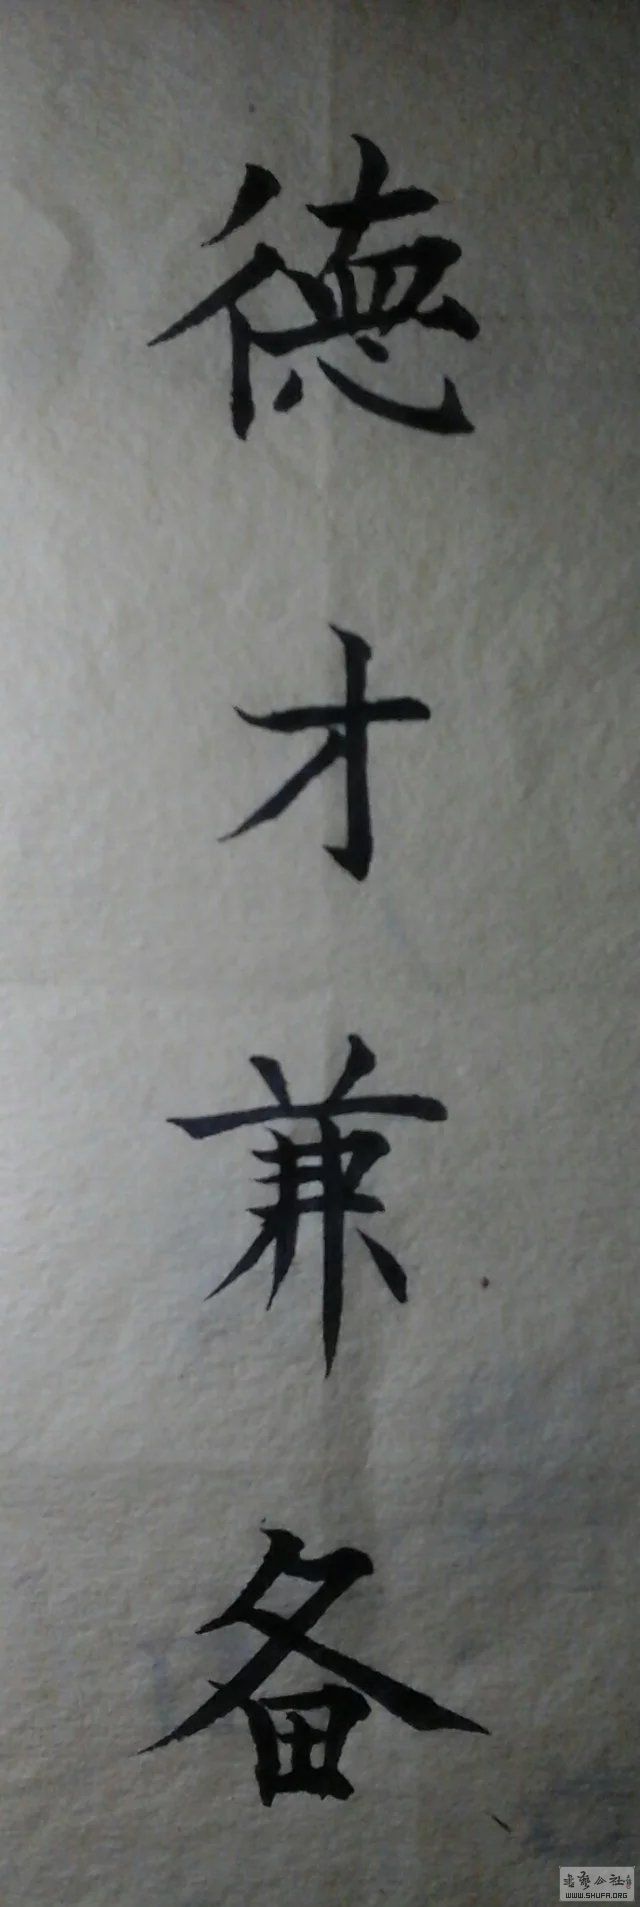 德才兼备
书艺公社
WWW.SHUFA.ORG